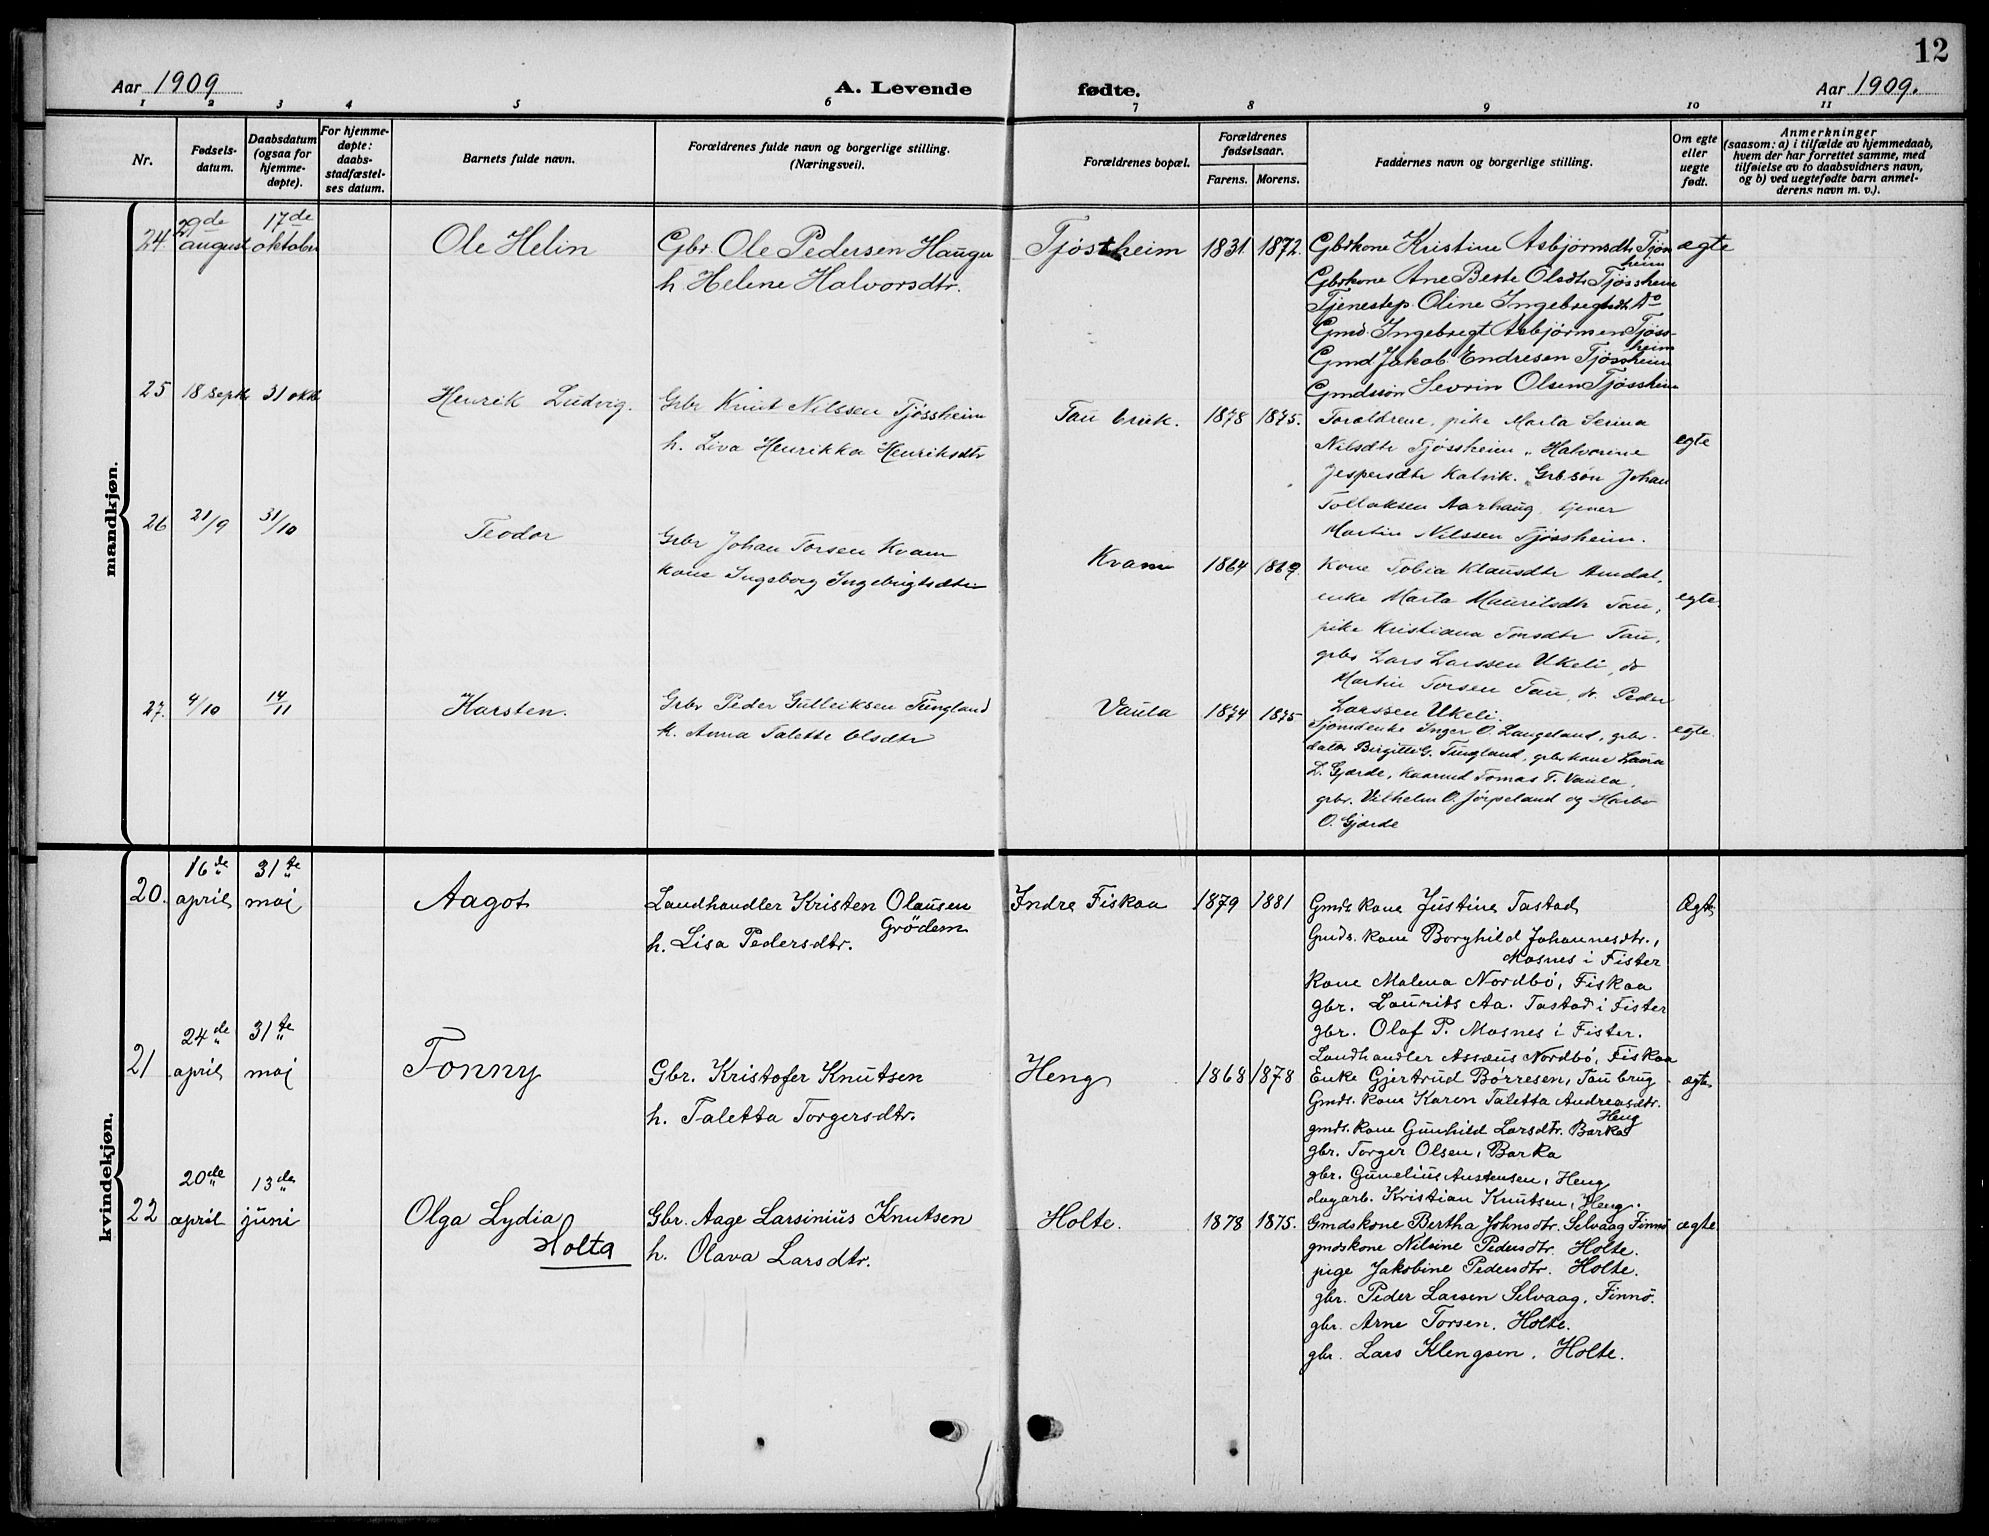 12
Aar 1909
A. Levende
fødte.
Aar 1909.
1 2 3 4 5 6 7 8 9 10 11
Nr.
Fødsels-
datum.
Daabsdatum
(ogsaa for
hjemme-
døpte).
For hjemme-
døpte:
daabs-
stadfæstel-
ses datum.
Barnets fulde navn.
Forældrenes fulde navn og borgerlige stilling.
(Næringsvei).
Forældrenes bopæl.
Forældrenes
fødselsaar.
Farens. Morens.
Faddernes navn og borgerlige stilling.
Om egte
eller
uegte
født.
Anmerkninger
(saasom: a) i tilfælde av hjemmedaab,
hvem der har forrettet samme, med
tilføielse av to daabsvidners navn,
og b) ved uegtefødte barn anmel-
derens navn m. v.).
mandkjøn.
24. 29de august
17de oktober
Ole Helin
Gbr. Ole Pedersen Hauge
h. Helene Halvorsdtr.
Tjøstheim
1831. 1872.
Gbrkone Kristine Asbjørnsdtr Tjøs
heim
Gbrkone Ane Berte Olsdtr Tjøssheim
Tjenestep. Oline Ingebregtsdtr. Do
Gmd. Ingebregt Asbjørnsen Tjøss-
heim
Gmd Jakob Endresen Tjøssheim
Gmdssøn Sevrin Olsen Tjøssheim
ægte
25 18 sept. 31 okt.
Henrik Ludvig.
Grbr Knut Nilssen Tjøssheim
h. Liva Henrikka Henriksdtr
Tau bruk.
1878 1875.
Foraldrene, pike Marta Serina
Nilsdtr Tjøssheim, Halvorine
Jespersdtr Kalvik. Grb.søn Johan
Tollaksen Aarhaug, tjener
Martin Nilssen Tjøssheim.
egte
26 21/9 31/10
Teodor
Grbr Johan Torsen Kvam
kone Ingeborg Ingebrigtsdtr
Kvam
1864 1869.
Kone Tobia Klausdtr Amdal,
enke Marta Mauritsdtr Tau,
pike Kristiana Torsdtr Tau,
grbr Lars Larssen Ukeli, do
Martin Torsen Tau, do. Peder
Larssen Ukeli.
egte.
27. 4/10 14/11
Karsten.
Grbr Peder Gulleiksen Tungland
k. Anna Talette Olsdtr
Vaula
1874 1875
Sjømdenke Inger O. Langeland, grbr.
datter Birgitte G. Tungland, grbrkone Laura
L. Gjerde, Tomas T. Vaula,
grbr. Vilhelm O. Jørpeland og
O. Gjerde
egte.
kvindekjøn.
20. 16de april
31te mai
Aagot
Landhandler Kristen Olausen
Grödem
h. Lisa Pedersdtr.
Indre Fiskaa
1879 1881
Gmds. kone Justine Tastad
Gmds. kone Borghild Johannesdtr.,
Mosnes i Fister
Kone Malena Nordbö, Fiskaa
gbr. Laurits Aa. Tastad i Fister
gbr. Olaf P. Mosnes i Fister.
Landhandler Assæus Nordbö, Fiskaa
Ægte
21 24de april
31te mai
Tonny
Gbr. Kristofer Knutsen
h. Taletta Torgersdtr.
Heng
1868 1878
Enke Gjertrud Börresen, Tau brug
Gmds. kone Karen Taletta Andreasdtr.
Heng
gmds. kone Gunhild Larsdtr. Barka
gbr. Torger Olsen, Barka
gbr. Gunelius Austensen, Heng
dagarb. Kristian Knutsen, Heng.
ægte
22 20de april
13de juni
Olga Lydia
Holta
Gbr. Aage Larsinius Knutsen
h. Olava Larsdtr.
Holte.
1878 1875.
Gmdskone Bertha Johnsdtr. Selvaag Finnö
gmdskone Nilsine Pedersdtr. Holte.
pige Jakobine Pedersdtr. Holte.
gbr. Peder Larsen Selvaag, Finnö.
gbr. Arne Torsen, Holte.
gbr. Lars Klengsen, Holte.
ægte